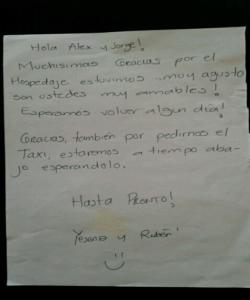 Hola Alex y Jorge!
Muchisimas Gracias por el
Hospedaje estuvimos muy agusto
son ustedes muy amables!
Esperamos volver algun día!
Gracias, también por pedirnos el
Taxi, estaremos a tiempo aba-
jo esperandolo.
Hasta Pronto!
Yesenia y Rubén